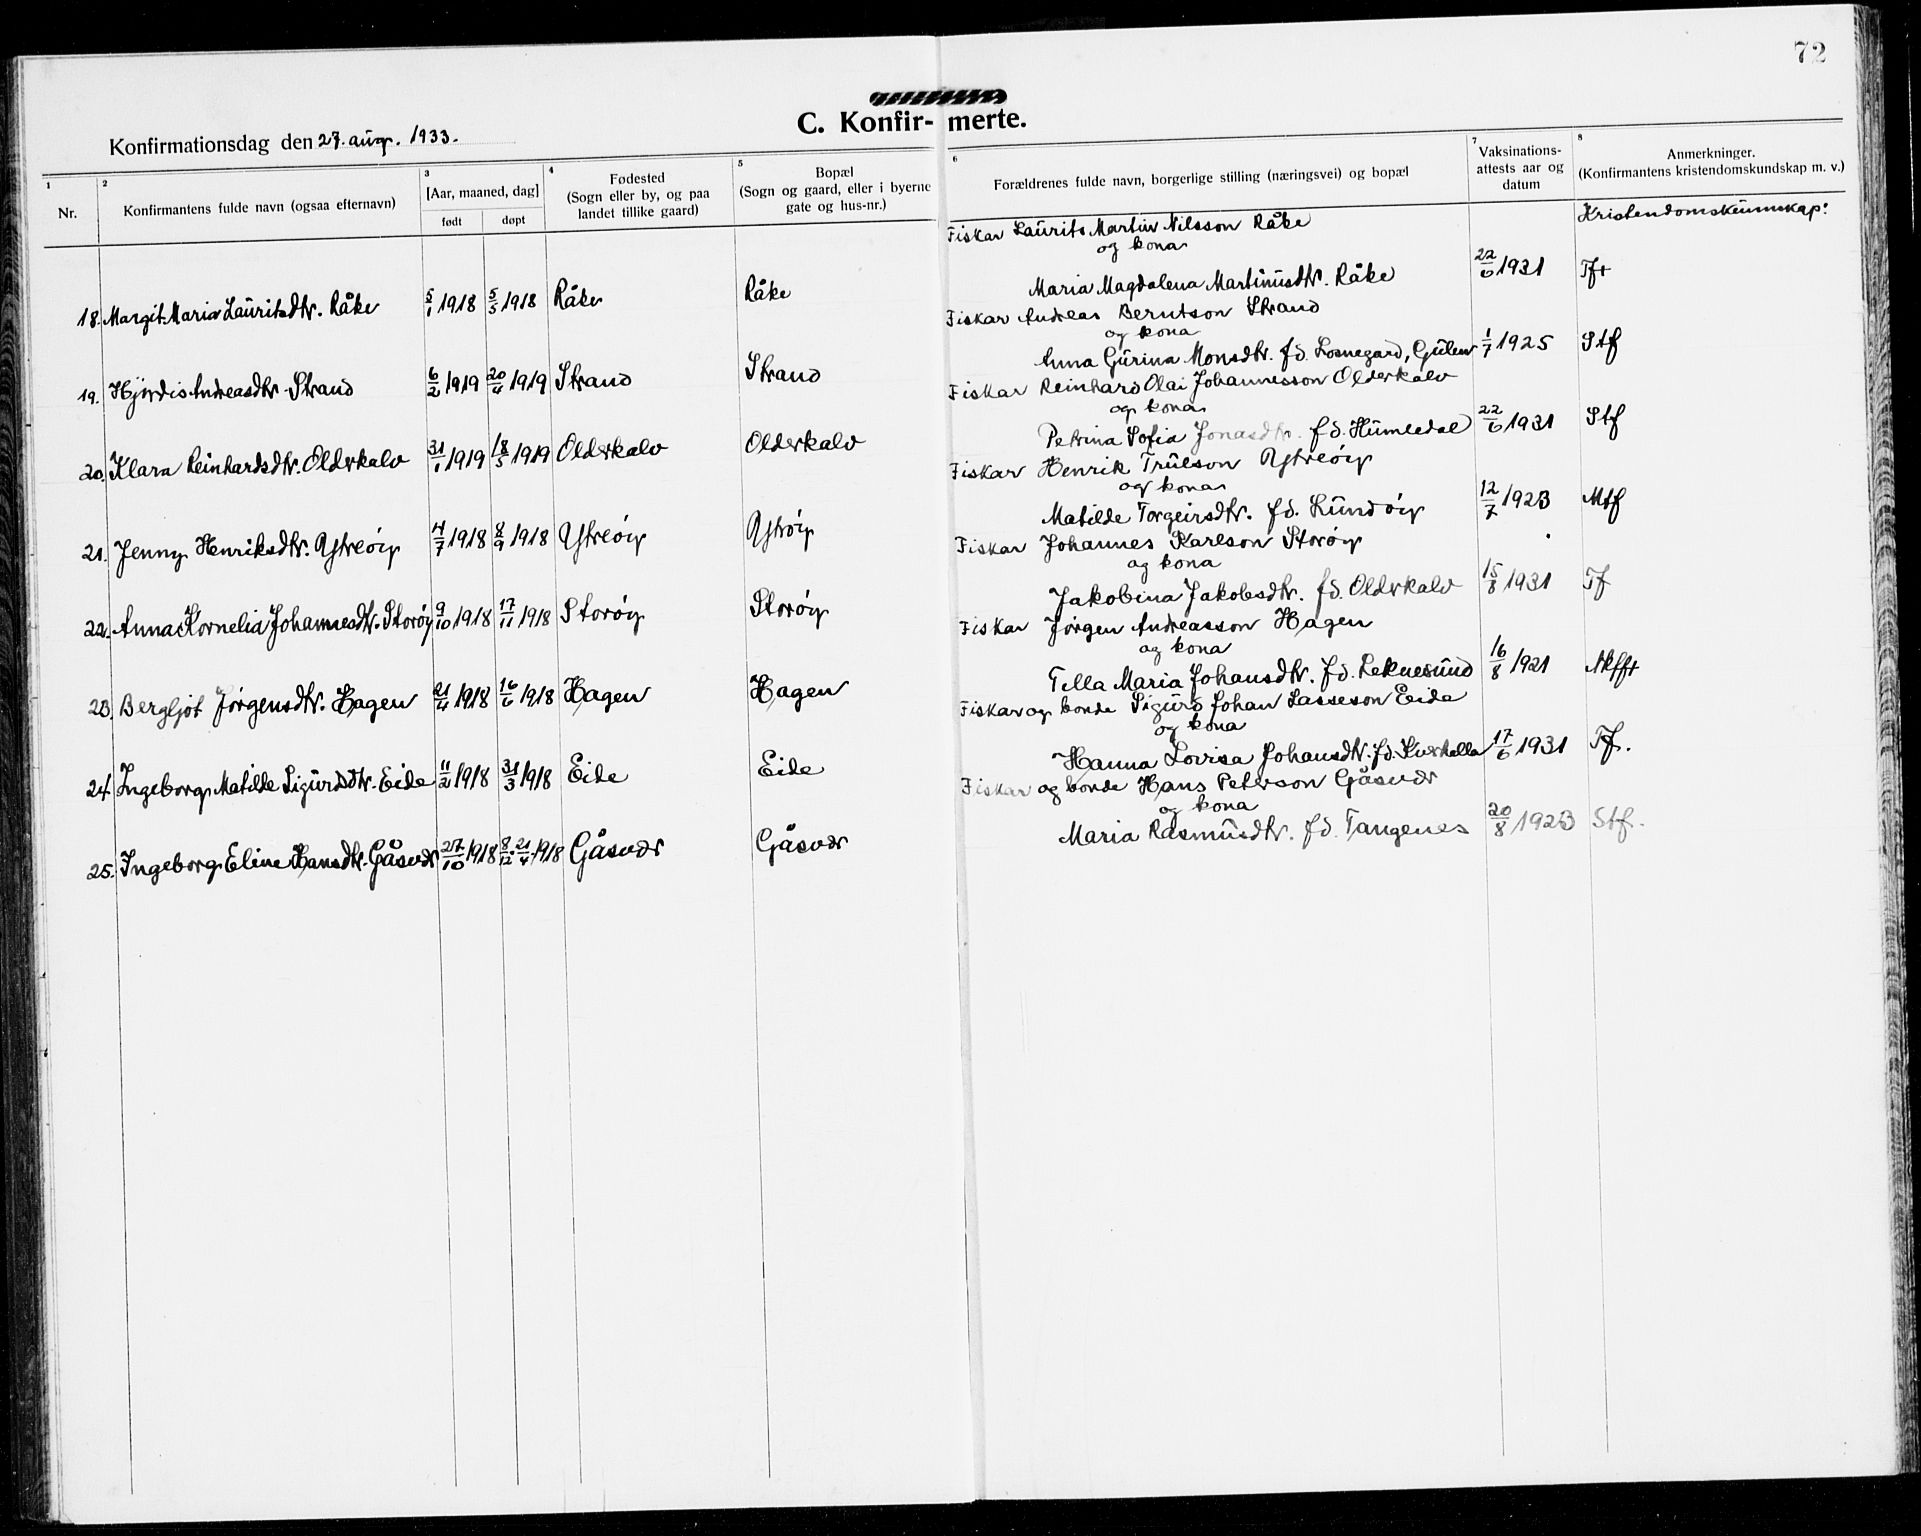 72
C. Konfirmerte.
Konfirmationsdag den 27. aug. 1933.
1 2 3 4 5 6 7 8
Nr. Konfirmantens fulde navn (ogsaa efternavn) [Aar, maaned, dag] født døpt Fødested (Sogn eller by, og paa landet tillike gaard) Bopæl (Sogn og gaard, eller i byerne gate og hus-nr.) Forældrenes fulde navn, borgerlige stilling (næringsvei) og bopæl Vaksinationsattests aar og datum Anmerkninger. (Konfirmantens kristendomskundskap m. v.)
Kristendomskunnskap:
Fiskar Laurits Martin Nilsson Råke
og kona
18. Margit Maria Lauritsdtr. Råke 5/1 1918 5/5 1918 Råke Råke Maria Magdalena Martinusdtr. Råke 22/6 1931 Tf+
Fiskar Andreas Berntson Strand
og kona
19. Hjördis Andreasdtr. Strand 6/2 1919 20/4 1919 Strand Strand Anna Gurina Monsdtr. fd. Losnegard, Gulen 1/7 1925 Stf
Fiskar Reinhard Olai Johannesson Olderkalv
og kona
20. Klara Reinhardsdtr. Olderkalv 31/1 1919 18/5 1919 Olderkalv Olderkalv Petrina Sofia Jonasdtr. fd. Humledal 22/6 1931 Stf
Fiskar Henrik Trulson Ytreöy
og kona
21. Jenny Henriksdtr. Ytreöy 4/7 1918 8/9 1918 Ytreöy Ytröy Matilde Torgeirsdtr. fd. Lundöy 12/7 1923 Mtf
Fiskar Johannes Karlson Storöy
og kona
22. Anna Kornelia Johannesdtr. Storöy 9/10 1918 17/11 1918 Storöy Storöy Jakobina Jakobsdtr. fd. Olderkalv 15/8 1931 Tf
Fiskar Jörgen Andreasson Hagen
og kona
23. Bergljot Jörgensdtr. Hagen 21/4 1918 16/6 1918 Hagen Hagen Tella Maria Johansdtr. fd. Leknesund 16/8 1921 Nkff+
Fiskar og bonde Sigurd Johan Lasseson Eide
og kona
24. Ingeborg Matilde Sigurdsdtr. Eide 11/2 1918 31/3 1918 Eide Eide Hanna Lovisa Johansdtr. fd. Kverhella 17/6 1931 Tf.
Fiskar og bonde Hans Peterson Gåsvær
og kona
25. Ingeborg Eline Hansdtr. Gåsvær 27/10 1918 8/12. 21/4 1918 Gåsvær Gåsvær Maria Rasmusdtr. fd. Tangenes 20/8 1923 Stf.